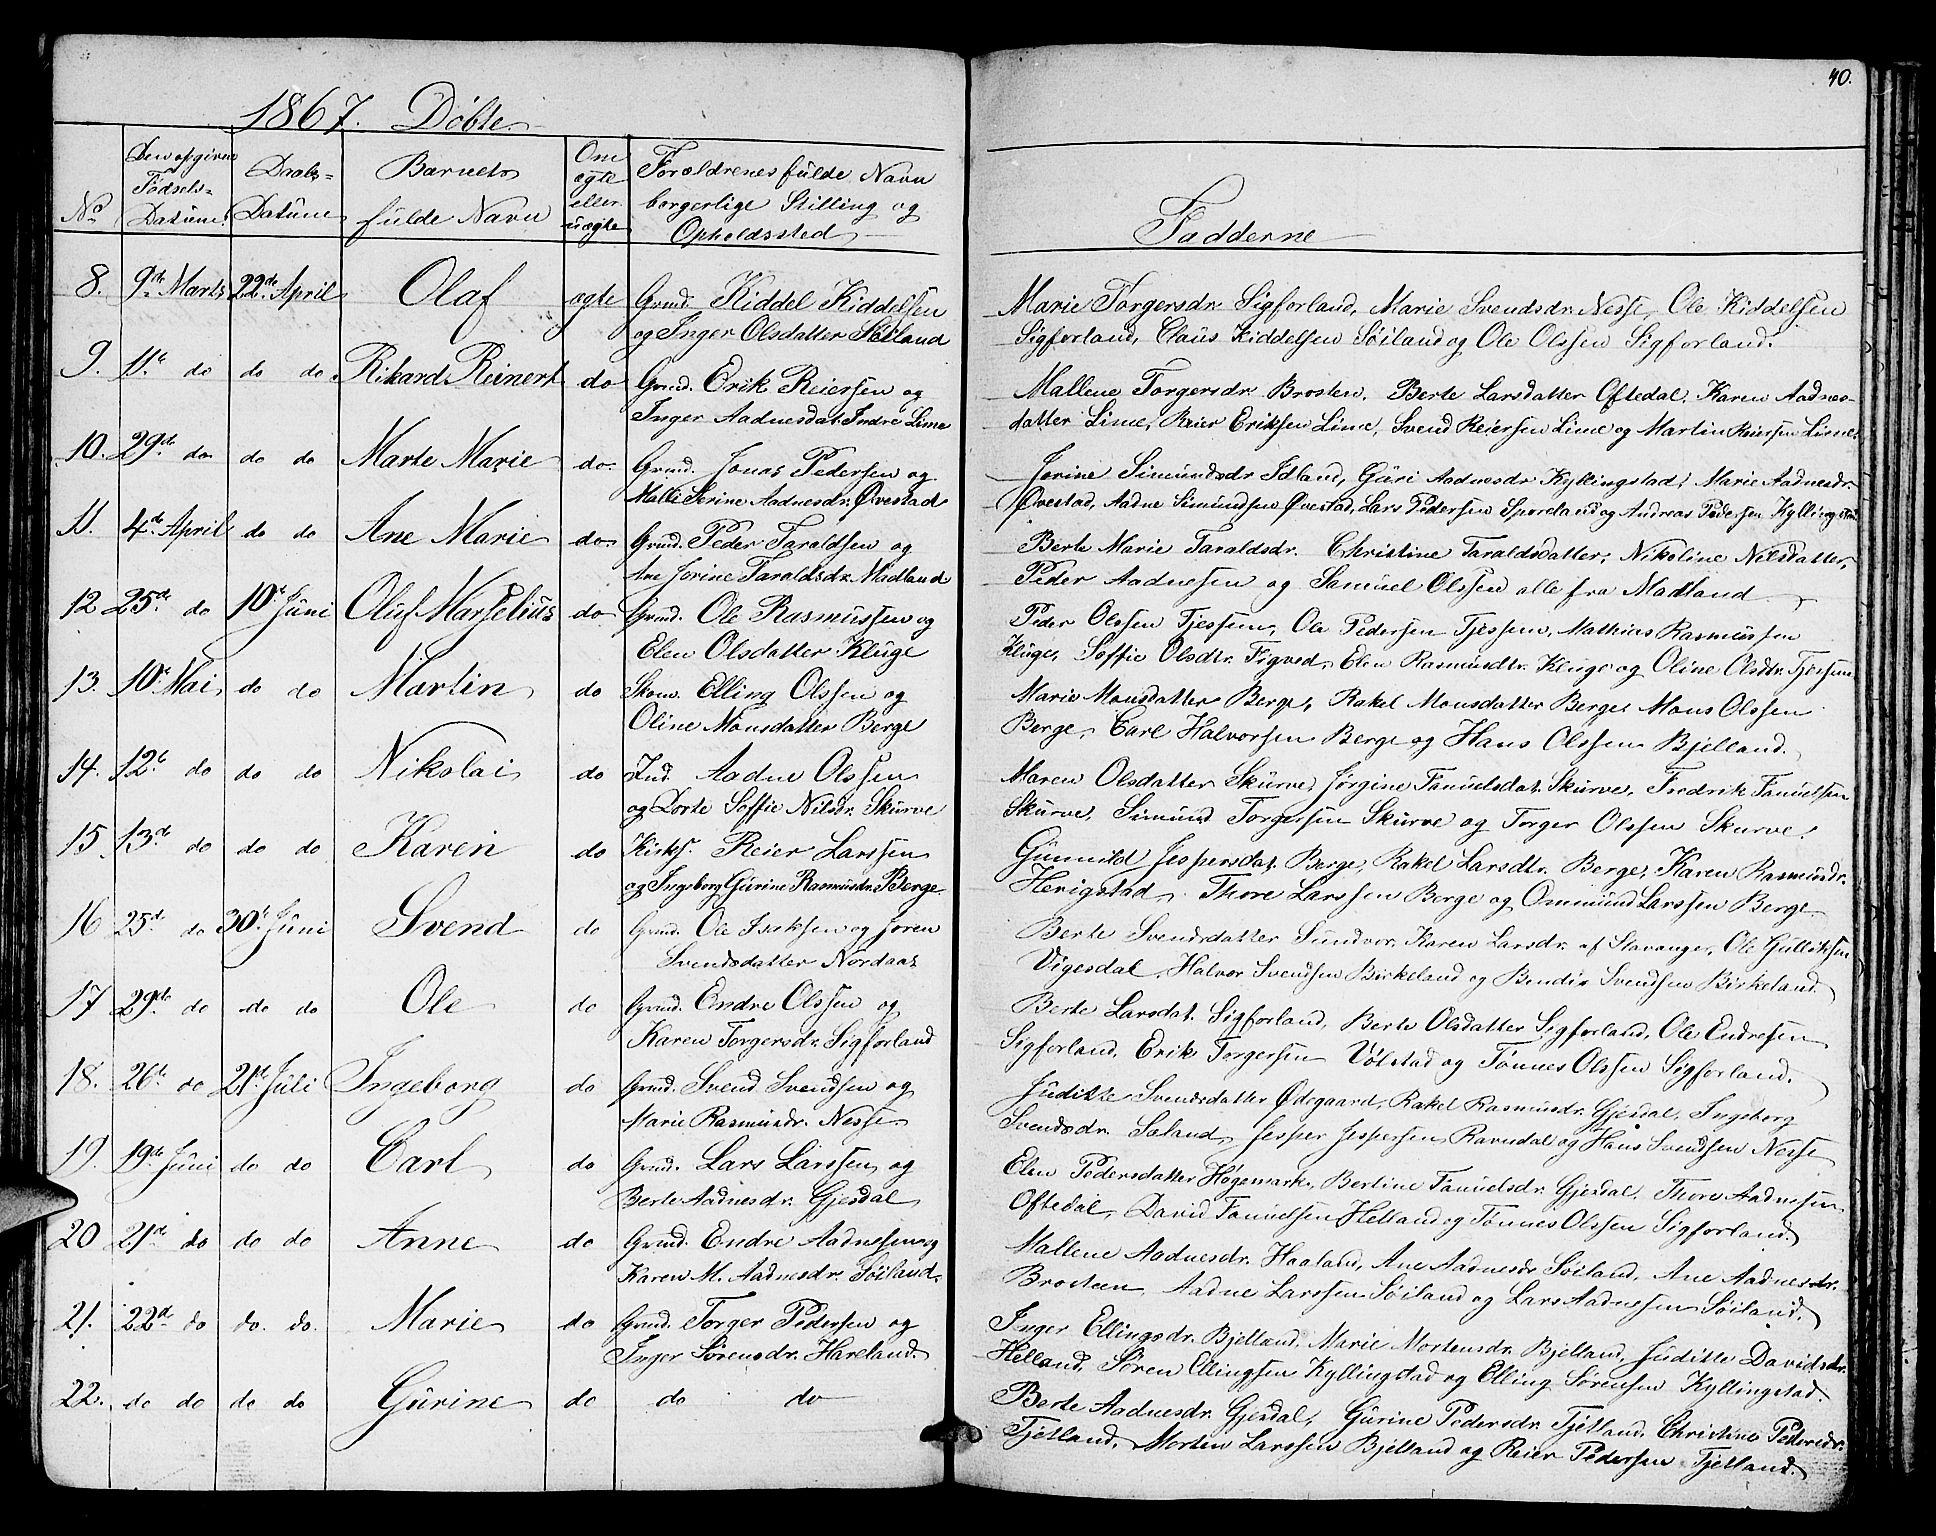 1867. Döbte
40.
No
Den opgivne Födsels= Datum
Daabs= Datum
Barnets fulde Navn
Om ægte eller uægte
Forældrenes fulde Navn borgerlige Stilling og Opholdssted
Fadderne
8. 9de Marts 22de April Olaf ægte Grmd. Kiddel Kiddelsen
og Inger Olsdatter Söiland
Marie Torgersdr. Sigforland, Marie Svendsdr. Nesse, Ole Kiddelsen
Sigforland, Claus Kiddelsen Söiland og Ole Olssen Sigforland.
9. 11te do do do Rikard Reinert do Grmd. Erik Reiersen og
Inger Aadnesdat. Indre Lime
Mallene Torgersdr. Brosten, Berte Larsdatter Oftedal, Karen Aadnes-
datter Lime, Reier Eriksen Lime, Svend Reiersen Lime og Martin Reiersen Lime.
10. 29de do do do Marte Marie do Grmd. Jonas Pedersen og
Malli Serine Aadnesdr. Øvestad
Jorine Simundsdr. Idland, Guri Aadnesdr. Kyllingstad, Marie Aadnesdr.
Øvestad, Aadne Simundsen Øvestad, Lars Pedersen Sporeland og Andreas Pedersen Kyllingstad
11. 4de April do do Ane Marie do Grmd. Peder Taraldsen og
Ane Jorine Taraldsdr. Madland
Berte Marie Taraldsdr. Christine Taraldsdatter, Nikoline Nilsdatter,
Peder Aadnesen og Samuel Olssen alle fra Madland
12 25de do 10de Juni Oluf Marselius do Grmd. Ole Rasmussen og
Elen Olsdatter Kluge
Peder Olssen Tjessem, Ole Pedersen Tjessem, Mathias Rasmussen
Kluge, Soffie Olsdtr. Figved, Elen Rasmusdtr. Kluge og Oline Olsdtr. Tjessem
13. 10de Mai do do Martin do Skom. Elling Olssen og
Oline Monsdatter Berge
Marie Monsdatter Berge, Rakel Monsdatter Berge Mons Olssen
Berge, Carl Halvorsen Berge og Hans Olssen Bjelland.
14. 12te do do do Nikolai do Ind. Aadne Olssen
og Dorte Soffie Nilsdr. Skurve
Maren Olsdatter Skurve, Jörgine Fanuelsdat. Skurve, Fredrik Fanuelsen
Skurve, Simund Torgersen Skurve og Torger Olssen Skurve.
15 13de do do do Karen do Kirks. Reier Larssen
og Ingeborg Gurine Rasmusdr. Berge
Gunnild Jespersdat. Berge, Rakel Larsdtr. Berge, Karen Rasmusdr.
Herigstad, Thore Larssen Berge og Ommund Larssen Berge
16 25de do 30te Juni Svend do Grmd. Ole Isaksen og Joren
Svendsdatter Nordaas
Berte Svendsdatter Sundvor, Karen Larsdr. af Stavanger, Ole Gulliksen
Vigesdal, Halvor Svendsen Birkeland og Bendix Svendsen Birkeland.
17 29de do do do Ole do Grmd. Endre Olssen og
Karen Torgersdr. Sigforland
Berte Larsdat. Sigforland, Berte Olsdatter Sigforland, Ole Endresen
Sigforland, Erik Torgersen Vølstad og Tönnes Olssen Sigforland.
18. 26de do 21de Juli Ingeborg do Grmd. Svend Svendsen og
Marie Rasmusdr. Nesse
Juditte Svendsdatter Ødegaard, Rakel Rasmusdr. Gjesdal, Ingeborg
Svendsdr. Soland, Jesper Jespersen Ravndal og Hans Svendsen Nesse
19. 19de Juni do do Carl do Grmd. Lars Larssen og
Berte Aadnesdr. Gjesdal
Elen Pedersdatter Høgemark, Bertine Fanuelsdr. Gjesdal, Thore Aadnesen
Oftedal, David Fanuelsen Helland og Tönnes Olssen Sigforland.
20 21de do do do Anne do Grmd. Endre Aadnesen og
Karen M. Aadnesdr. Söiland
Mallene Aadnesdr. Haaland, Ane Aadnesdr Söiland, Ane Aadnesdr.
Brosteen, Aadne Larssen Söiland og Lars Aadnesen Söiland.
21. 22de do do. do. Marie do Grmd. Torger Pedersen og
Inger Sörensdr. Haveland.
Inger Ellingsdr. Bjelland, Marie Mortensdr. Bjelland, Juditte Davidsdr.
Helland, Sören Ellingsen Kyllingstad og Elling Sörensen Kyllingstad.
22. do do do do Gurine do do do
Berte Aadnesdr. Gjesdal, Gurine Pedersdr. Tjetland, Christine Pedersdr.
Tjetland, Morten Larssen Bjelland og Reier Pedersen Tjetland.